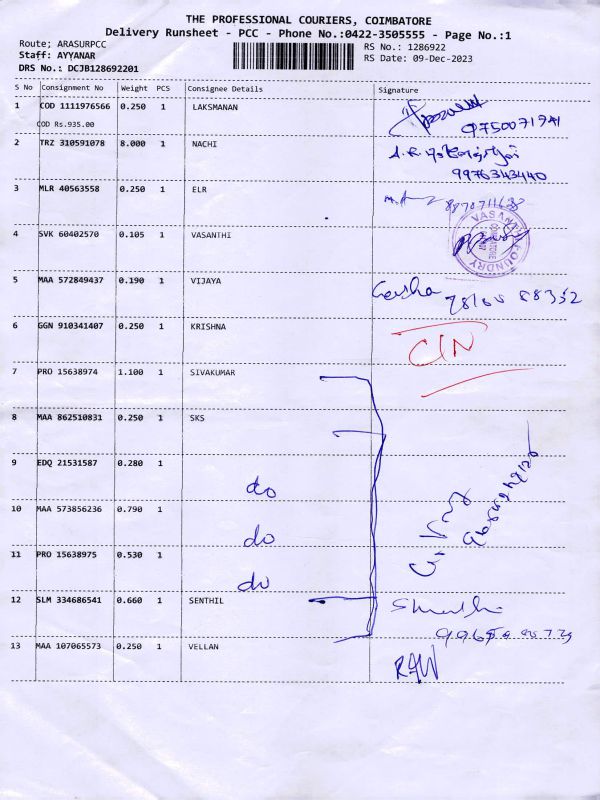 THE PROFESSIONAL COURIERS, COIMBATORE
Delivery Runsheet - PCC - Phone No.:0422-3505555 - Page No.:1
Route; ARASURPCC
RS No.: 1286922
Staff: AYYANAR
RS Date: 09-Dec-2023
DRS No.: DCJB128692201
S No Consignment No Weight PCS Consignee Details Signature
1 COD 1111976566 0.250 1 LAKSMANAN
COD Rs.935.00
9750071941
2 TRZ 310591078 8.000 1 NACHI
9976343440
3 MLR 40563558 0.250 1 ELR
VASANTHA FOUNDRY
4 SVK 60402570 0.105 1 VASANTHI
5 MAA 572849437 0.190 1 VIJAYA
6 GGN 910341407 0.250 1 KRISHNA
CIN
7 PRO 15638974 1.100 1 SIVAKUMAR
8 MAA 862510831 0.250 1 SKS
9 EDQ 21531587 0.280 1 do
10 MAA 573856236 0.790 1 do
11 PRO 15638975 0.530 1 do
12 SLM 334686541 0.660 1 SENTHIL
13 MAA 107065573 0.250 1 VELLAN RAW